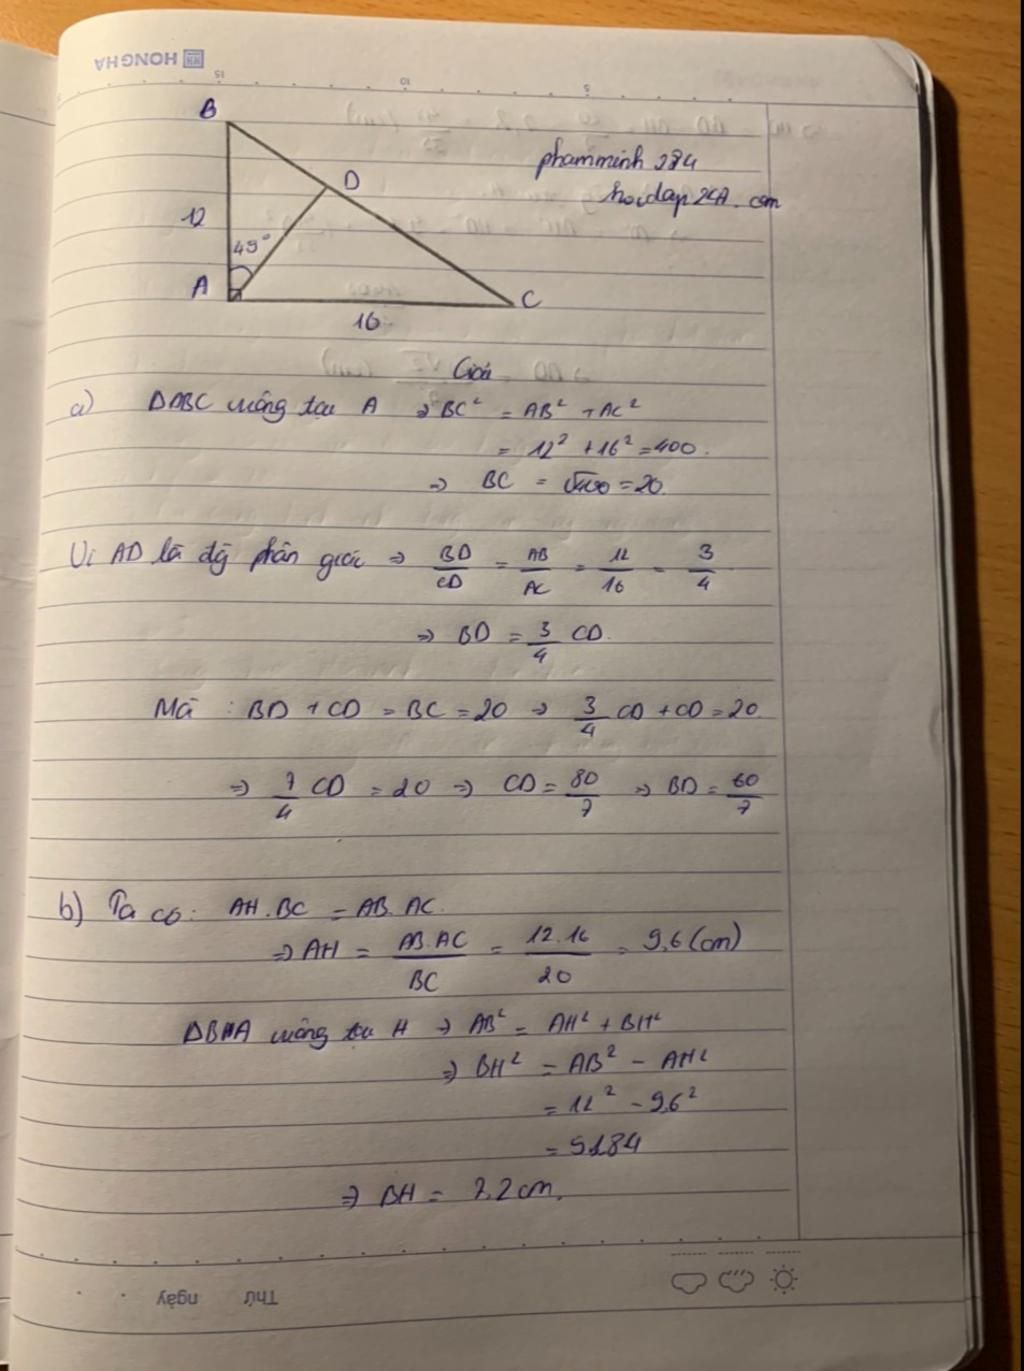 HONGHA
15 10 5
B
D
phamminh 284
hoidap247.com
12
45°
A
C
16
Giải
a) ΔABC vuông tại A ⇒ BC² = AB² + AC²
= 12² + 16² = 400.
⇒ BC = √400 = 20.
Vì AD là đg phân giác ⇒ BD/CD = AB/AC = 12/16 = 3/4
⇒ BD = 3/4 CD.
Mà : BD + CD = BC = 20 ⇒ 3/4 CD + CD = 20.
⇒ 7/4 CD = 20 ⇒ CD = 80/7 ⇒ BD = 60/7
b) Ta có: AH.BC = AB.AC.
⇒ AH = AB.AC/BC = 12.16/20 = 9,6 (cm)
ΔBHA vuông tại H ⇒ AB² = AH² + BH²
⇒ BH² = AB² - AH²
= 12² - 9,6²
= 51,84
⇒ BH = 7,2 cm.
Thứ ngày